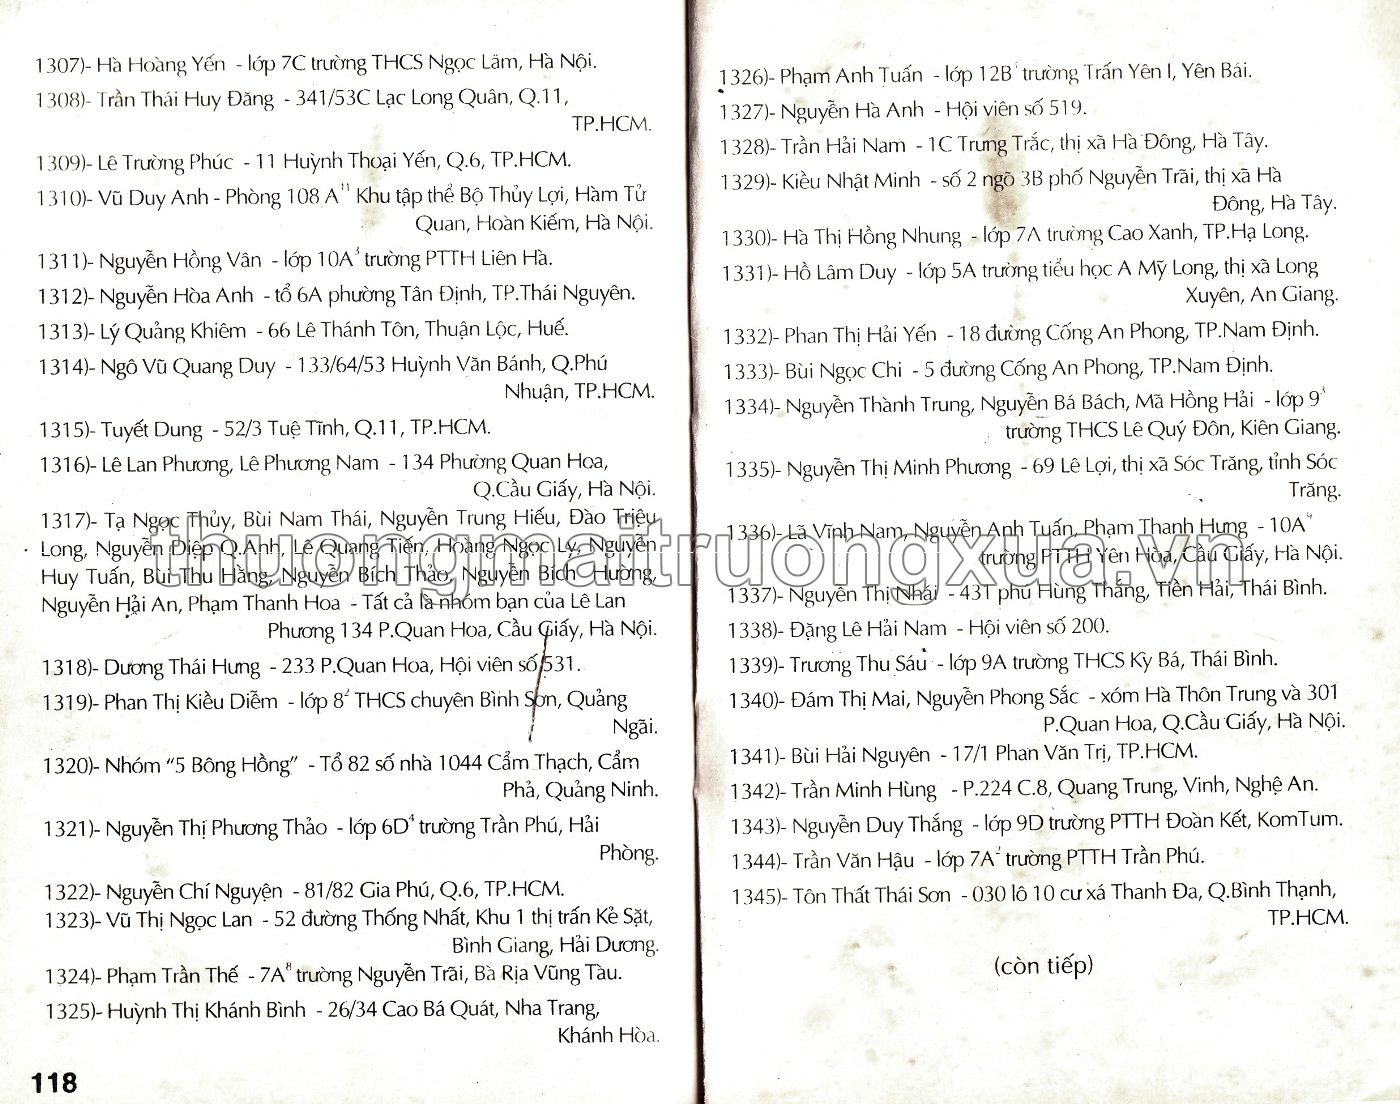 1307)- Hà Hoàng Yến - lớp 7C trường THCS Ngọc Lâm, Hà Nội.
1308)- Trần Thái Huy Đăng - 341/53C Lạc Long Quân, Q.11,
TP.HCM.
1309)- Lê Trường Phúc - 11 Huỳnh Thoại Yến, Q.6, TP.HCM.
1310)- Vũ Duy Anh - Phòng 108 A¹¹ Khu tập thể Bộ Thủy Lợi, Hàm Tử
Quan, Hoàn Kiếm, Hà Nội.
1311)- Nguyễn Hồng Vân - lớp 10A³ trường PTTH Liên Hà.
1312)- Nguyễn Hòa Anh - tổ 6A phường Tân Định, TP.Thái Nguyên.
1313)- Lý Quảng Khiêm - 66 Lê Thánh Tôn, Thuận Lộc, Huế.
1314)- Ngô Vũ Quang Duy - 133/64/53 Huỳnh Văn Bánh, Q.Phú
Nhuận, TP.HCM.
1315)- Tuyết Dung - 52/3 Tuệ Tĩnh, Q.11, TP.HCM.
1316)- Lê Lan Phương, Lê Phương Nam - 134 Phường Quan Hoa,
Q.Cầu Giấy, Hà Nội.
1317)- Tạ Ngọc Thủy, Bùi Nam Thái, Nguyễn Trung Hiếu, Đào Triệu
Long, Nguyễn Diệp Q.Anh, Lê Quang Tiến, Hoàng Ngọc Ly, Nguyễn
Huy Tuấn, Bùi Thu Hằng, Nguyễn Bích Thảo, Nguyễn Bích Hường,
Nguyễn Hải An, Phạm Thanh Hoa - Tất cả là nhóm bạn của Lê Lan
Phương 134 P.Quan Hoa, Cầu Giấy, Hà Nội.
1318)- Dương Thái Hưng - 233 P.Quan Hoa, Hội viên số 531.
1319)- Phan Thị Kiều Diễm - lớp 8² THCS chuyên Bình Sơn, Quảng
Ngãi.
1320)- Nhóm “5 Bông Hồng” - Tổ 82 số nhà 1044 Cẩm Thạch, Cẩm
Phả, Quảng Ninh.
1321)- Nguyễn Thị Phương Thảo - lớp 6D⁴ trường Trần Phú, Hải
Phòng.
1322)- Nguyễn Chí Nguyện - 81/82 Gia Phú, Q.6, TP.HCM.
1323)- Vũ Thị Ngọc Lan - 52 đường Thống Nhất, Khu 1 thị trấn Kẻ Sặt,
Bình Giang, Hải Dương.
1324)- Phạm Trần Thế - 7A⁸ trường Nguyễn Trãi, Bà Rịa Vũng Tàu.
1325)- Huỳnh Thị Khánh Bình - 26/34 Cao Bá Quát, Nha Trang,
Khánh Hòa.
118
1326)- Phạm Anh Tuấn - lớp 12B¹ trường Trấn Yên I, Yên Bái.
1327)- Nguyễn Hà Anh - Hội viên số 519.
1328)- Trần Hải Nam - 1C Trưng Trắc, thị xã Hà Đông, Hà Tây.
1329)- Kiều Nhật Minh - số 2 ngõ 3B phố Nguyễn Trãi, thị xã Hà
Đông, Hà Tây.
1330)- Hà Thị Hồng Nhung - lớp 7A trường Cao Xanh, TP.Hạ Long.
1331)- Hồ Lâm Duy - lớp 5A trường tiểu học A Mỹ Long, thị xã Long
Xuyên, An Giang.
1332)- Phan Thị Hải Yến - 18 đường Cống An Phong, TP.Nam Định.
1333)- Bùi Ngọc Chi - 5 đường Cống An Phong, TP.Nam Định.
1334)- Nguyễn Thành Trung, Nguyễn Bá Bách, Mã Hồng Hải - lớp 9³
trường THCS Lê Quý Đôn, Kiên Giang.
1335)- Nguyễn Thị Minh Phương - 69 Lê Lợi, thị xã Sóc Trăng, tỉnh Sóc
Trăng.
1336)- Lã Vĩnh Nam, Nguyễn Anh Tuấn, Phạm Thanh Hưng - 10A⁴
trường PTTH Yên Hòa, Cầu Giấy, Hà Nội.
thuongmaitruongxua.vn
1337)- Nguyễn Thị Nhái - 431 phú Hùng Thắng, Tiền Hải, Thái Bình.
1338)- Đặng Lê Hải Nam - Hội viên số 200.
1339)- Trương Thu Sáu - lớp 9A trường THCS Kỳ Bá, Thái Bình.
1340)- Đám Thị Mai, Nguyễn Phong Sắc - xóm Hà Thôn Trung và 301
P.Quan Hoa, Q.Cầu Giấy, Hà Nội.
1341)- Bùi Hải Nguyên - 17/1 Phan Văn Trị, TP.HCM.
1342)- Trần Minh Hùng - P.224 C.8, Quang Trung, Vinh, Nghệ An.
1343)- Nguyễn Duy Thắng - lớp 9D trường PTTH Đoàn Kết, KomTum.
1344)- Trần Văn Hậu - lớp 7A² trường PTTH Trần Phú.
1345)- Tôn Thất Thái Sơn - 030 lô 10 cư xá Thanh Đa, Q.Bình Thạnh,
TP.HCM.
(còn tiếp)